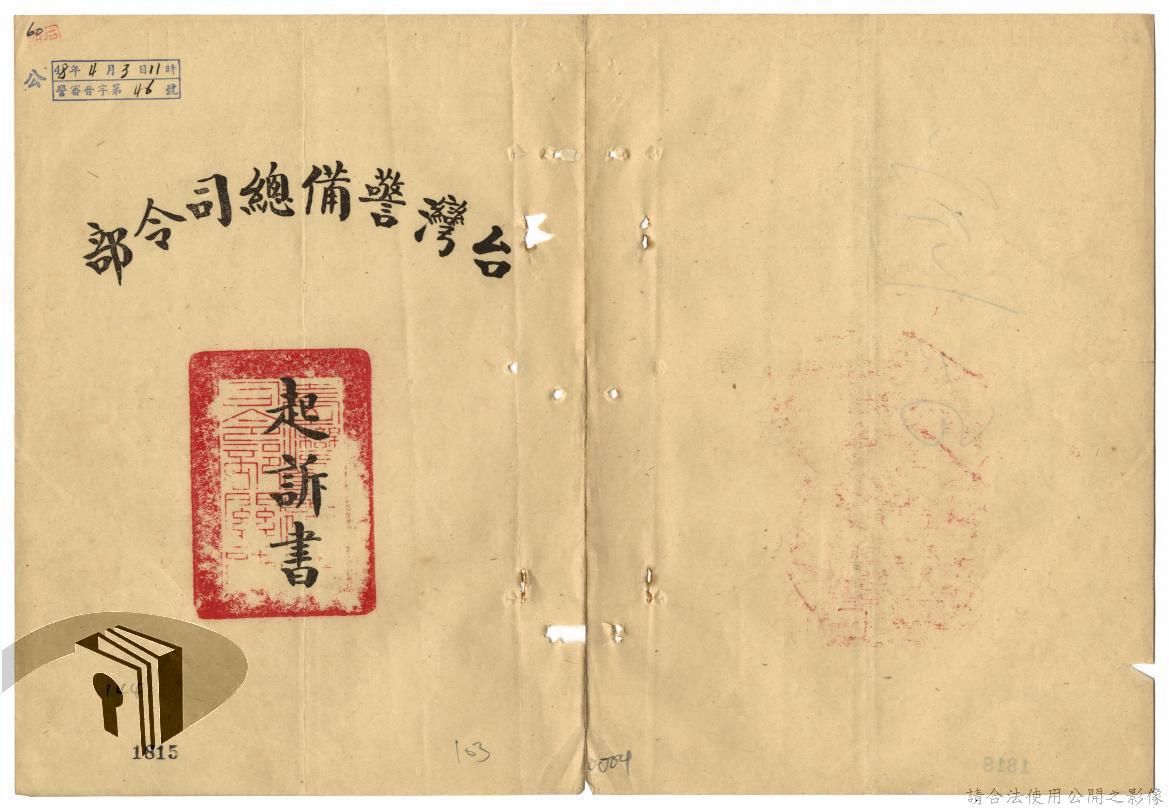 60
公
48年4月3日11時
警審晋字第46號
台灣警備總司令部
起訴書
144
1815
103
0004
1818
請合法使用公開之影像